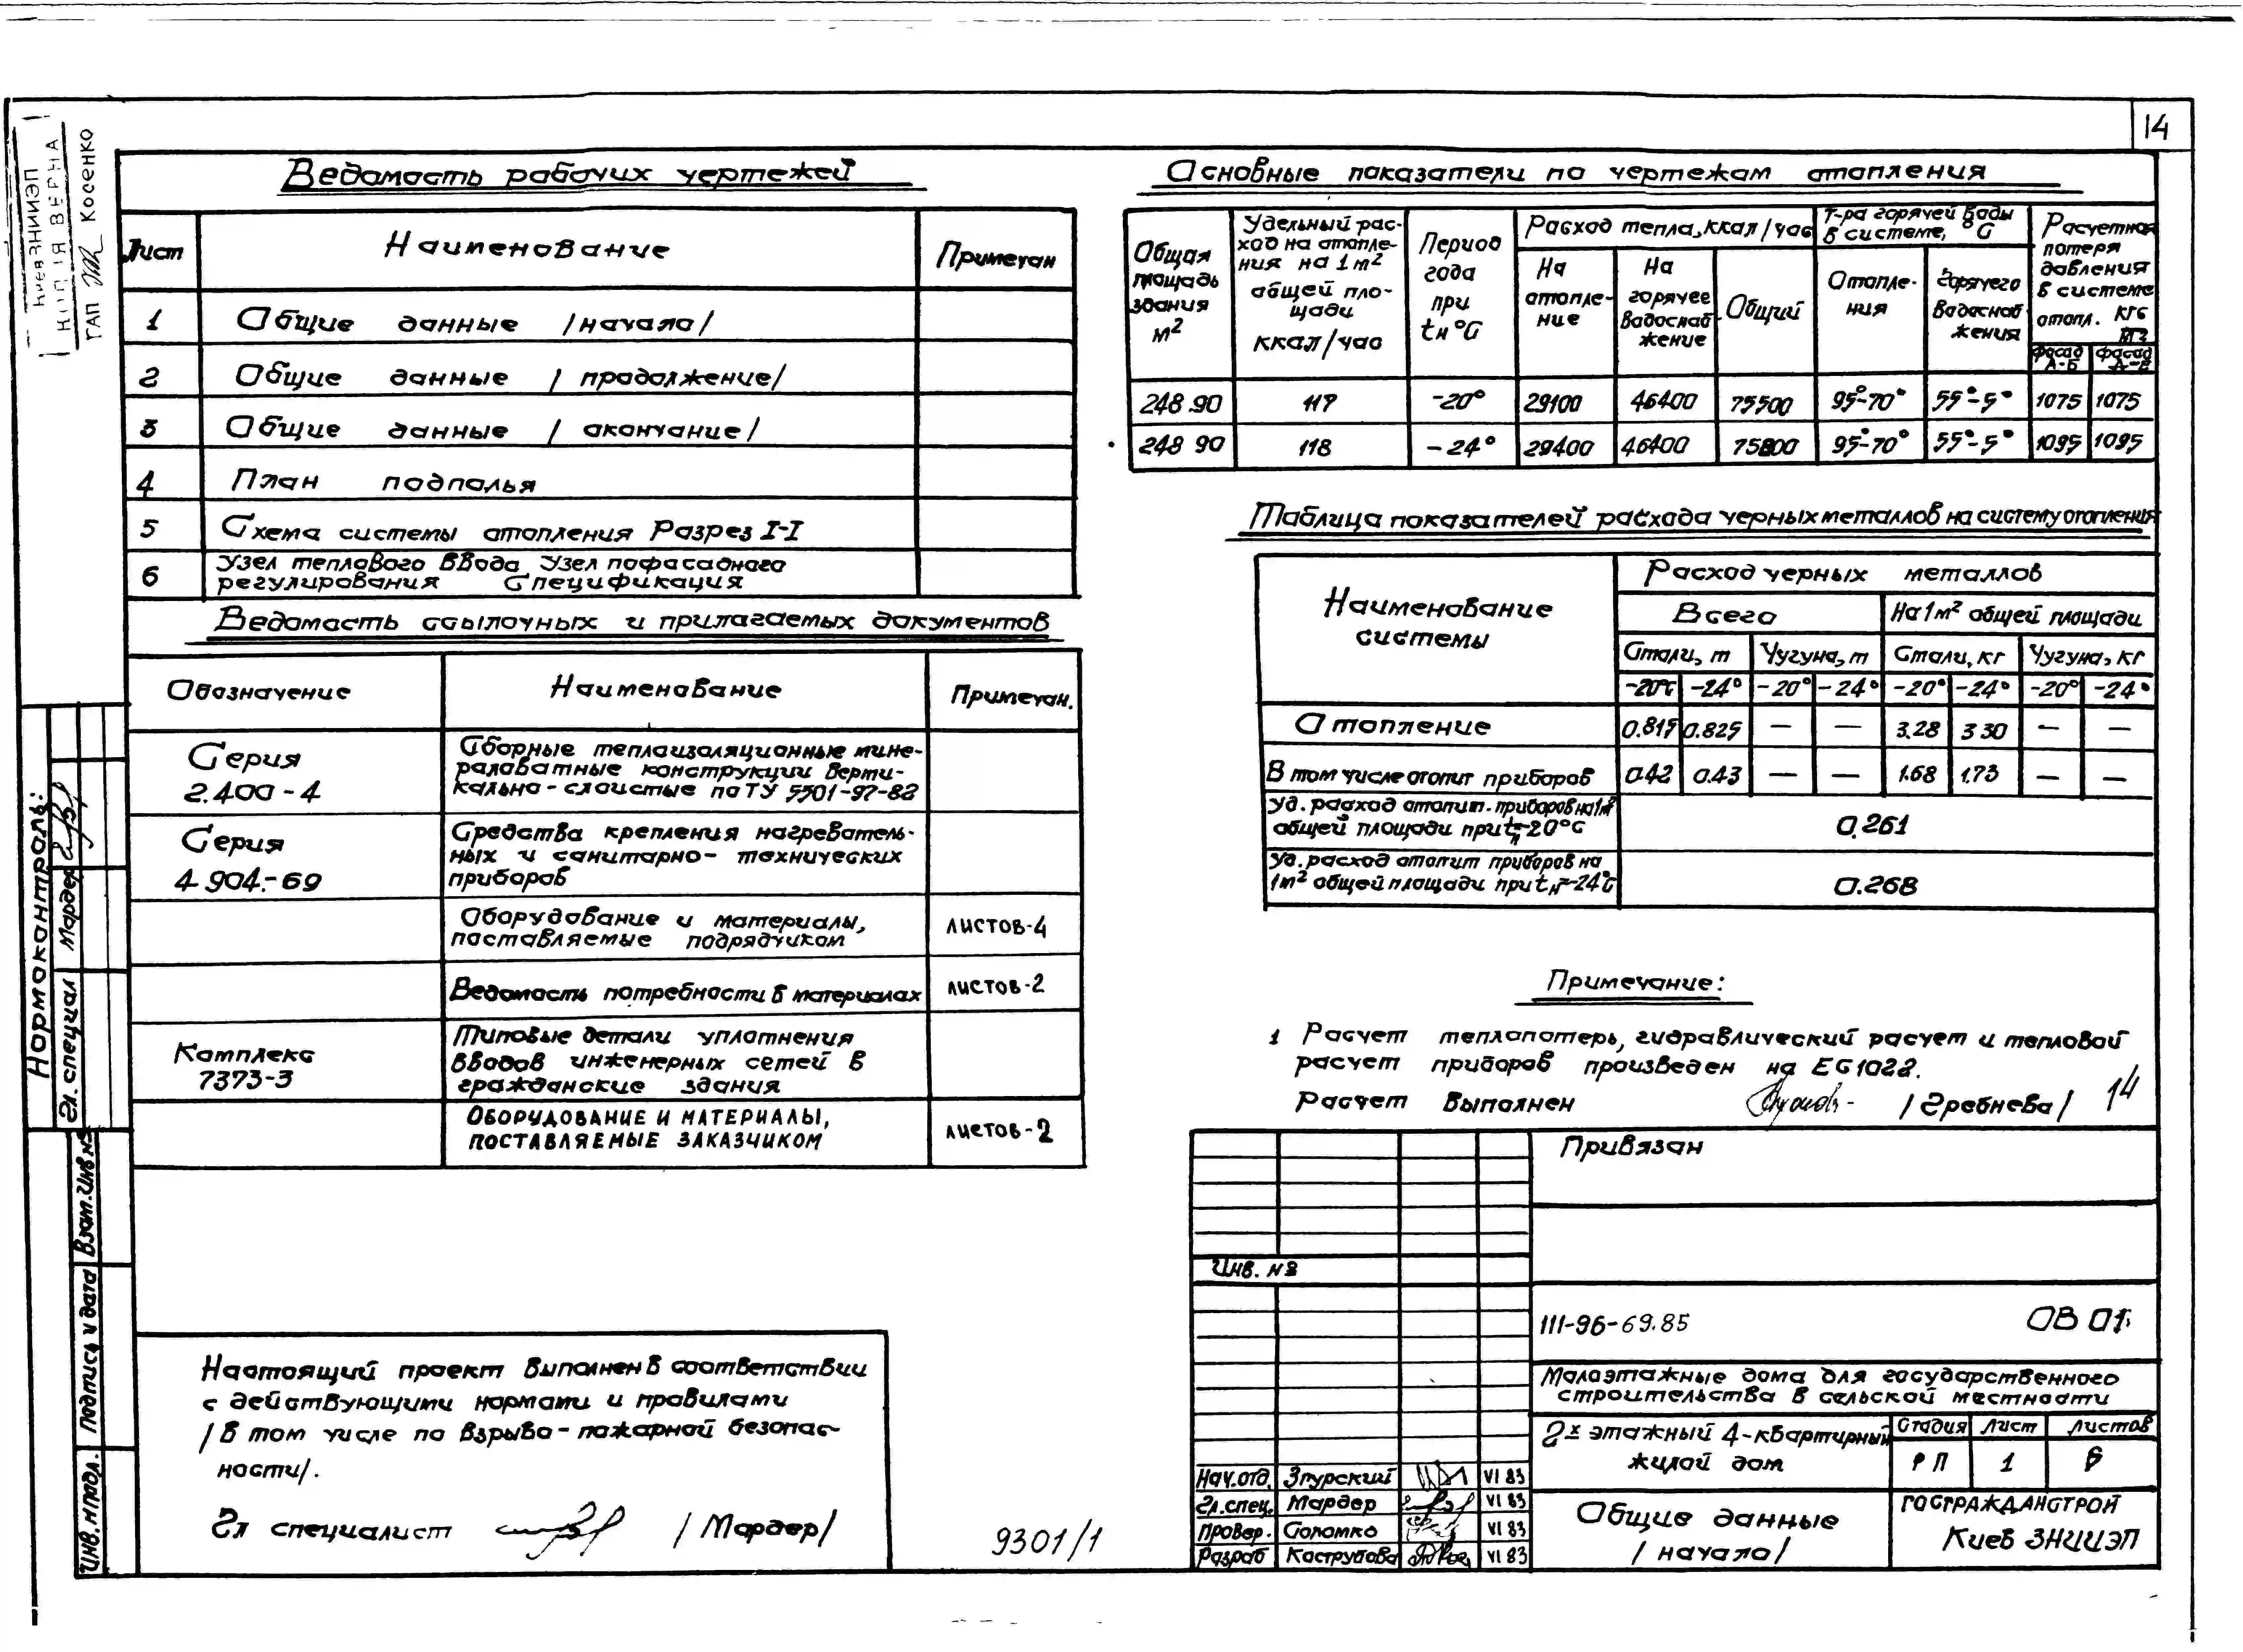 14
КиевЗНИИЭП
КОПІЯ ВЕРНА
ГАП Косенко
Ведомость рабочих чертежей
Лист Наименование Примечан
1 Общие данные /начало/
2 Общие данные /продолжение/
3 Общие данные /окончание/
4 План подполья
5 Схема системы отопления Разрез I-I
6 Узел теплового ввода Узел пофасадного
регулирования Спецификация
Ведомость ссылочных и прилагаемых документов
Обозначение Наименование Примечан.
Серия
2.400-4
Сборные теплоизоляционные мине-
раловатные конструкции верти-
кально-слоистые по ТУ 5501-97-82
Серия
4.904.-69
Средства крепления нагреватель-
ных и санитарно-технических
приборов
Оборудование и материалы,
поставляемые подрядчиком
листов-4
Ведомость потребности в материалах листов-2
Комплекс
7373-3
Типовые детали уплотнения
вводов инженерных сетей в
гражданские здания
Оборудование и материалы,
поставляемые заказчиком
листов-2
Настоящий проект выполнен в соответствии
с действующими нормами и правилами
/в том числе по взрыво-пожарной безопас-
ности/.
Гл специалист /Мардер/
9301/1
Нормоконтроль:
Гл. специал Мардер
Взам.инв№
Подпись и дата
Инв.№подл.
Основные показатели по чертежам отопления
Общая
площадь
здания
м²
Удельный рас-
ход на отопле-
ния на 1м²
общей пло-
щади
ккал/час
Период
года
при
tн°С
Расход тепла,ккал/час
На
отопле-
ние
На
горячее
водоснаб-
жение
Общий
Т-ра горячей воды
в системе, °С
Отопле-
ния
Горячего
водоснаб
жения
Расчетная
потеря
давления
в системе
отопл. кгс
м2
фасад
А-Б
фасад
248.90 117 -20° 29100 46400 75500 95°-70° 55°-5° 1075 1075
248 90 118 -24° 29400 46400 75800 95°-70° 55°-5° 1095 1095
Таблица показателей расхода черных металлов на систему отопления
Наименование
системы
Расход черных металлов
Всего На 1м² общей площади
Стали, т Чугуна, т Стали, кг Чугуна, кг
-20°С -24° -20° -24° -20° -24° -20° -24°
Отопление 0.815 0.825 — — 3.28 3 30 — —
В том числе отопит приборов 0.42 0.43 — — 1.68 1.73 — —
Уд. расход отопит. приборов на 1м²
общей площади при tн=-20°С
0.261
Уд. расход отопит приборов на
1м² общей площади при tн=-24°С
0.268
Примечание:
1 Расчет теплопотерь, гидравлический расчет и тепловой
расчет приборов произведен на ЕС1022.
Расчет выполнен /Гребнева/
14
Привязан
Инв. №
III-96-69.85 ОВ 01
Малоэтажные дома для государственного
строительства в сельской местности
2х этажный 4-квартирный
жилой дом
Стадия Лист Листов
РП 1 6
Общие данные
/начало/
ГОСГРАЖДАНСТРОЙ
Киев ЗНИИЭП
Нач.отд. Згурский VI 83
Гл.спец. Мардер VI 83
Провер. Соломко VI 83
Разраб Кострубова VI 83